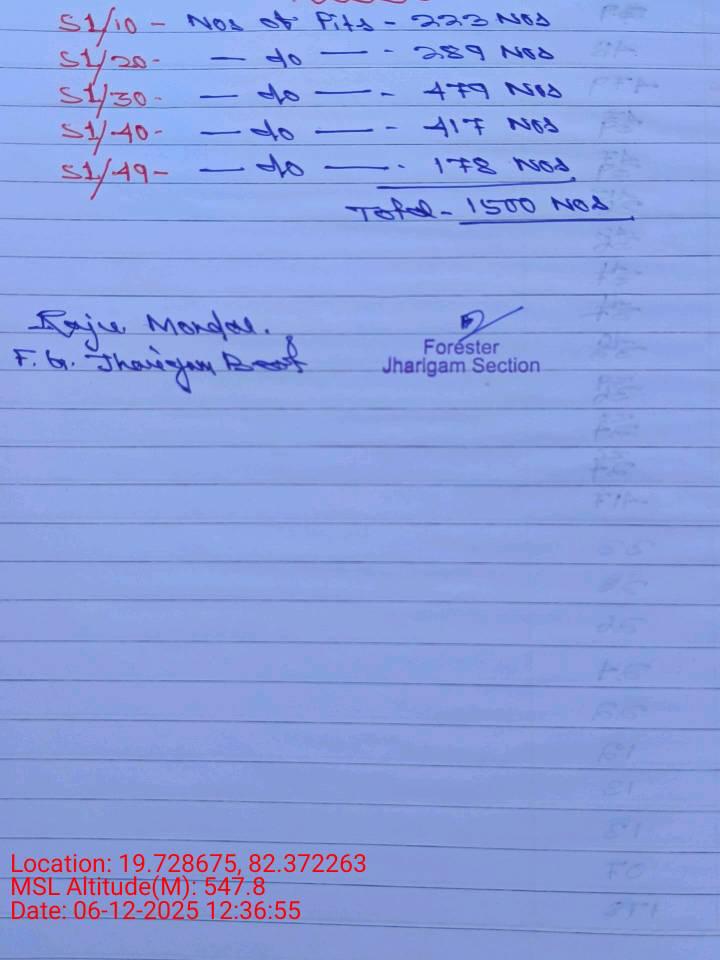 S1/10 - Nos of Pits - 223 Nos
S1/20 - — do — - 289 Nos
S1/30 - — do — - 479 Nos
S1/40 - — do — - 417 Nos
S1/49 - — do — - 178 Nos
Total - 1500 Nos
Raju Mondal.
F. G. Jharigam Beat
Forester
Jharigam Section
Location: 19.728675, 82.372263
MSL Altitude(M): 547.8
Date: 06-12-2025 12:36:55